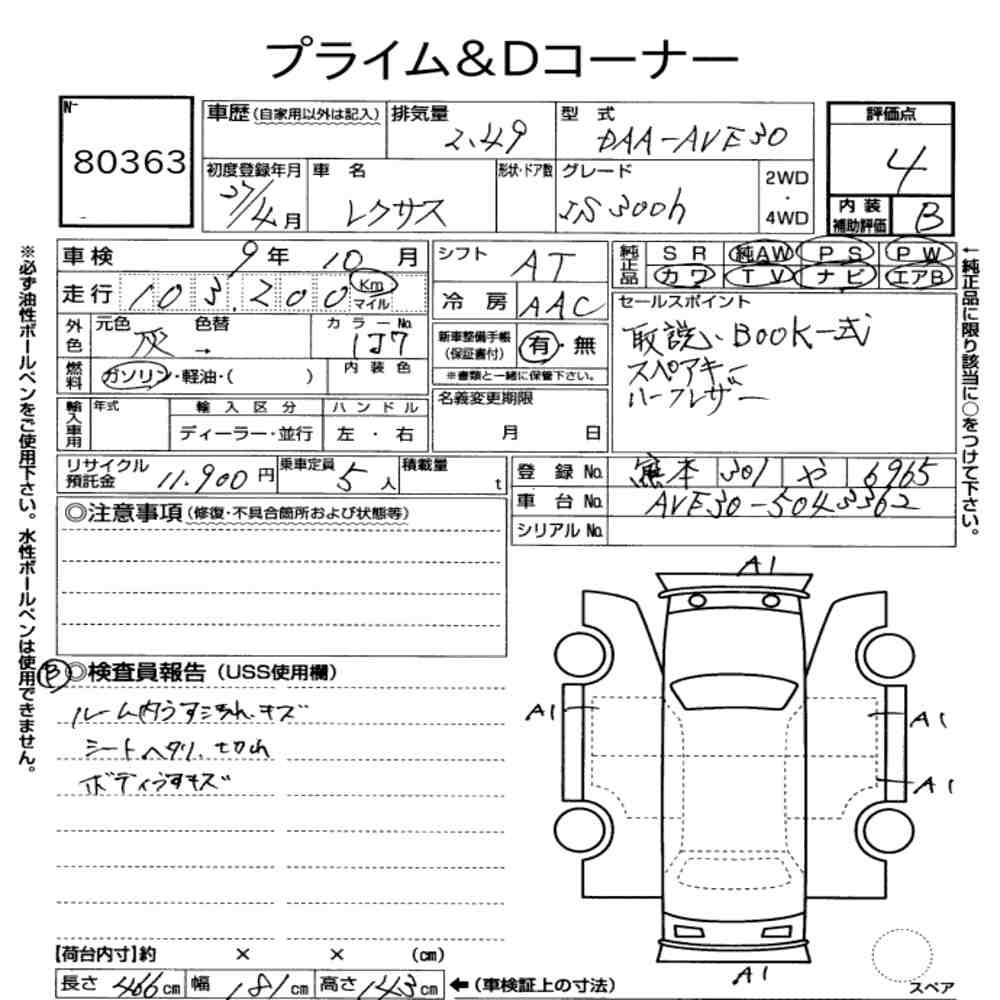 プライム&Dコーナー
N-
80363
車歴(自家用以外は記入)
排気量
2.49
型 式
DAA-AVE30
評価点
4
初度登録年月
27/4月
車 名
レクサス
形状・ドア数
グレード
IS300h
2WD
・
4WD
内装
補助評価
B
車検
9年 10月
シフト
AT
純正品
SR 純AW PS PW
カワ TV ナビ エアB
走行
103,200
Km
マイル
冷房
AAC
セールスポイント
取説、BOOK一式
スペアキー
ハーフレザー
外色
元色
灰
色替
→
カラーNo.
1J7
新車整備手帳
(保証書付)
有・無
※書類と一緒に保管下さい。
燃料
ガソリン・軽油・( )
内装色
名義変更期限
月 日
輸入車用
年式
輸入区分
ディーラー・並行
ハンドル
左・右
リサイクル
預託金
11.900円
乗車定員
5人
積載量
t
登録No.
熊本 301 や 6965
車台No.
AVE30-5043362
シリアルNo.
◎注意事項(修復・不具合箇所および状態等)
B
◎検査員報告(USS使用欄)
ルーム内うすごれ、キズ
シートヘタリ、切れ
ボディうすキズ
A1
A1
A1
A1
A1
スペア
【荷台内寸】約 × × (cm)
長さ 466cm 幅 181cm 高さ 143cm ←(車検証上の寸法)
※必ず油性ボールペンをご使用下さい。水性ボールペンは使用できません。
←純正品に限り該当に○をつけて下さい。